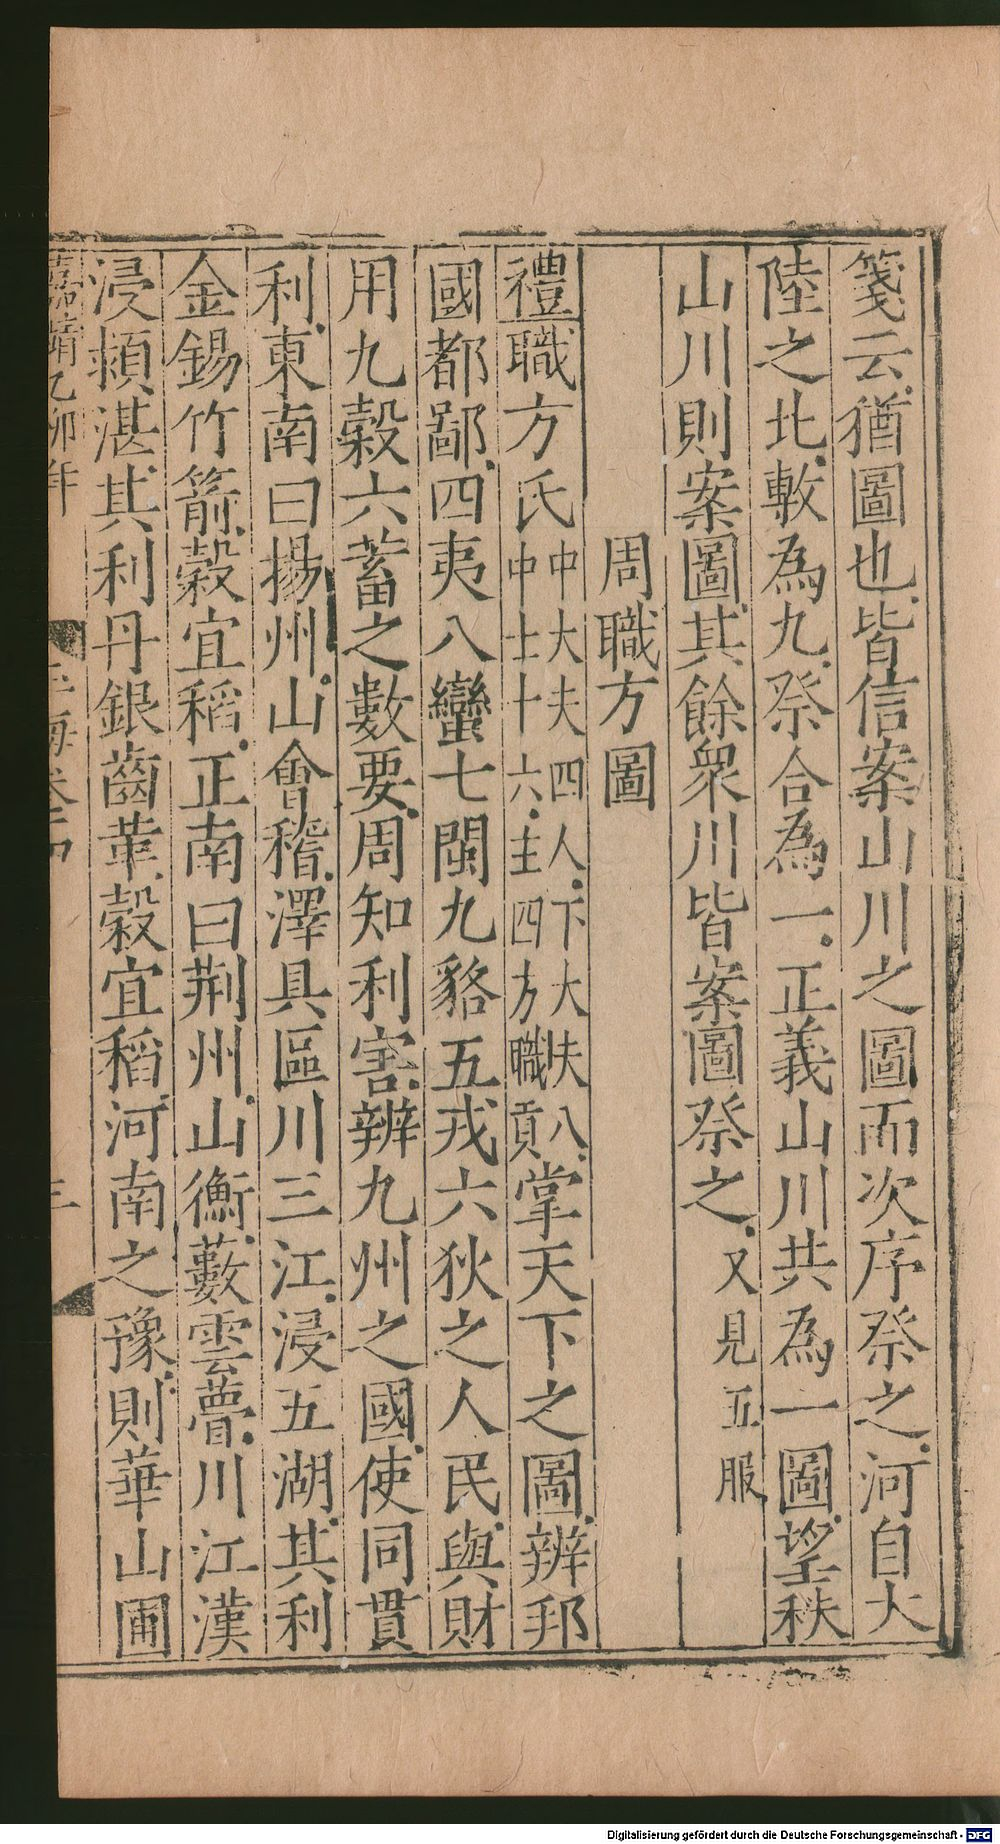 箋云猶圖也皆信案山川之圖而次序祭之河自大
陸之北敷為九祭合為一正義山川共為一圖望秩
山川則案圖其餘衆川皆案圖祭之又見五服
周職方圖
禮職方氏中大夫四人下大夫八中士十六主四方職貢掌天下之圖辨邦
國都鄙四夷八蠻七閩九貉五戎六狄之人民與財
用九穀六畜之數要周知利害辨九州之國使同貫
利東南曰揚州山會稽澤具區川三江浸五湖其利
金錫竹箭穀宜稻正南曰荆州山衡藪雲瞢川江漢
浸潁湛其利丹銀齒革穀宜稻河南之豫則華山圃
嘉靖乙卯年 玉海卷 三
Digitalisierung gefördert durch die Deutsche Forschungsgemeinschaft - DFG